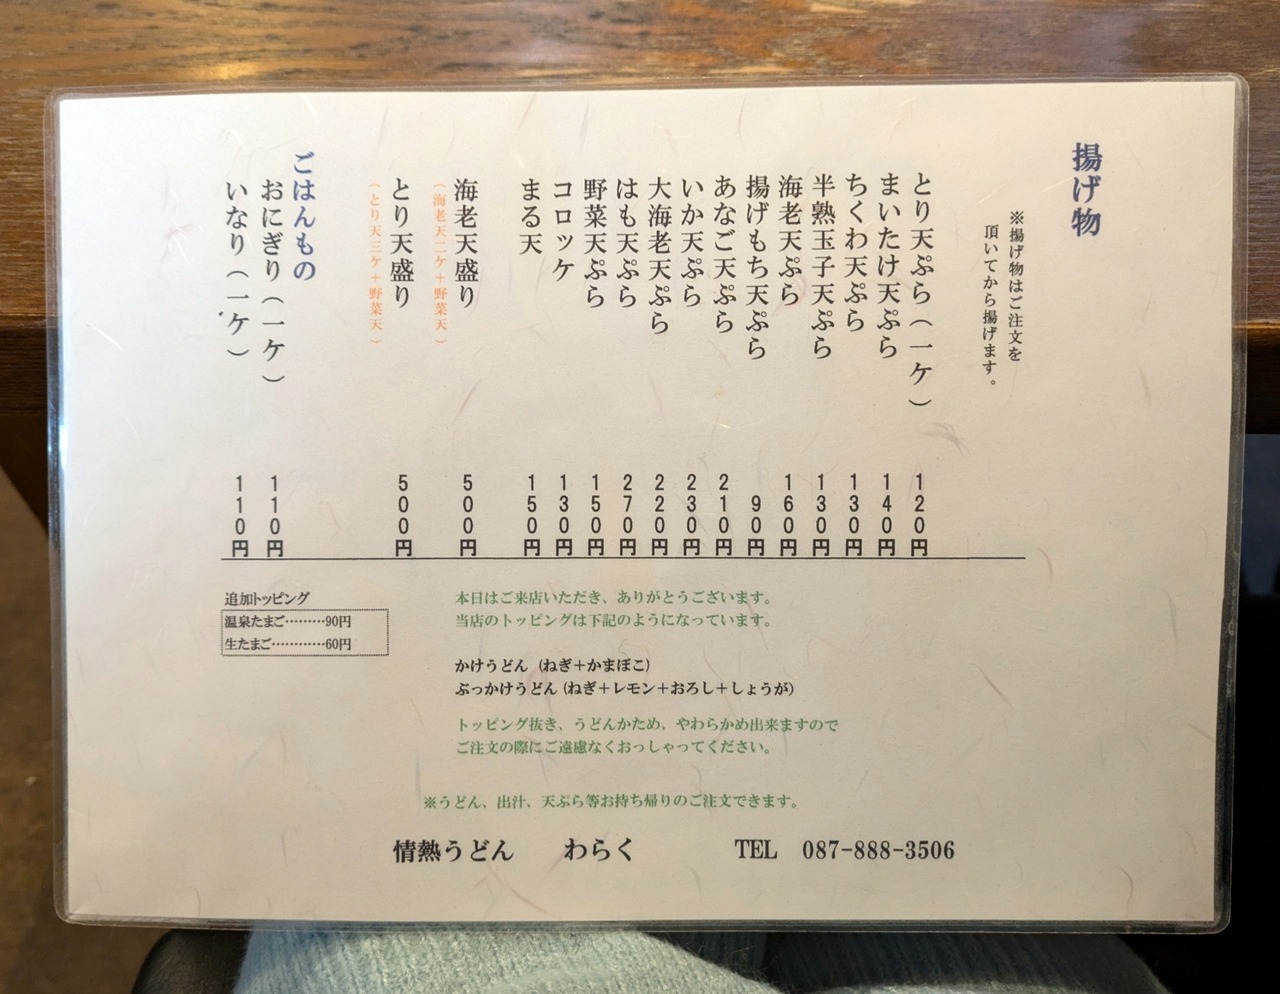 揚げ物
※揚げ物はご注文を
頂いてから揚げます。
とり天ぷら（一ケ） 120円
まいたけ天ぷら 140円
ちくわ天ぷら 130円
半熟玉子天ぷら 130円
海老天ぷら 160円
揚げもち天ぷら 90円
あなご天ぷら 210円
いか天ぷら 230円
大海老天ぷら 220円
はも天ぷら 270円
野菜天ぷら 150円
コロッケ 130円
まる天 150円
海老天盛り 500円
（海老天二ケ＋野菜天）
とり天盛り 500円
（とり天三ケ＋野菜天）
ごはんもの
おにぎり（一ケ） 110円
いなり（一ケ） 110円
追加トッピング
温泉たまご………90円
生たまご…………60円
本日はご来店いただき、ありがとうございます。
当店のトッピングは下記のようになっています。
かけうどん（ねぎ＋かまぼこ）
ぶっかけうどん（ねぎ＋レモン＋おろし＋しょうが）
トッピング抜き、うどんかため、やわらかめ出来ますので
ご注文の際にご遠慮なくおっしゃってください。
※うどん、出汁、天ぷら等お持ち帰りのご注文できます。
情熱うどん わらく TEL 087-888-3506